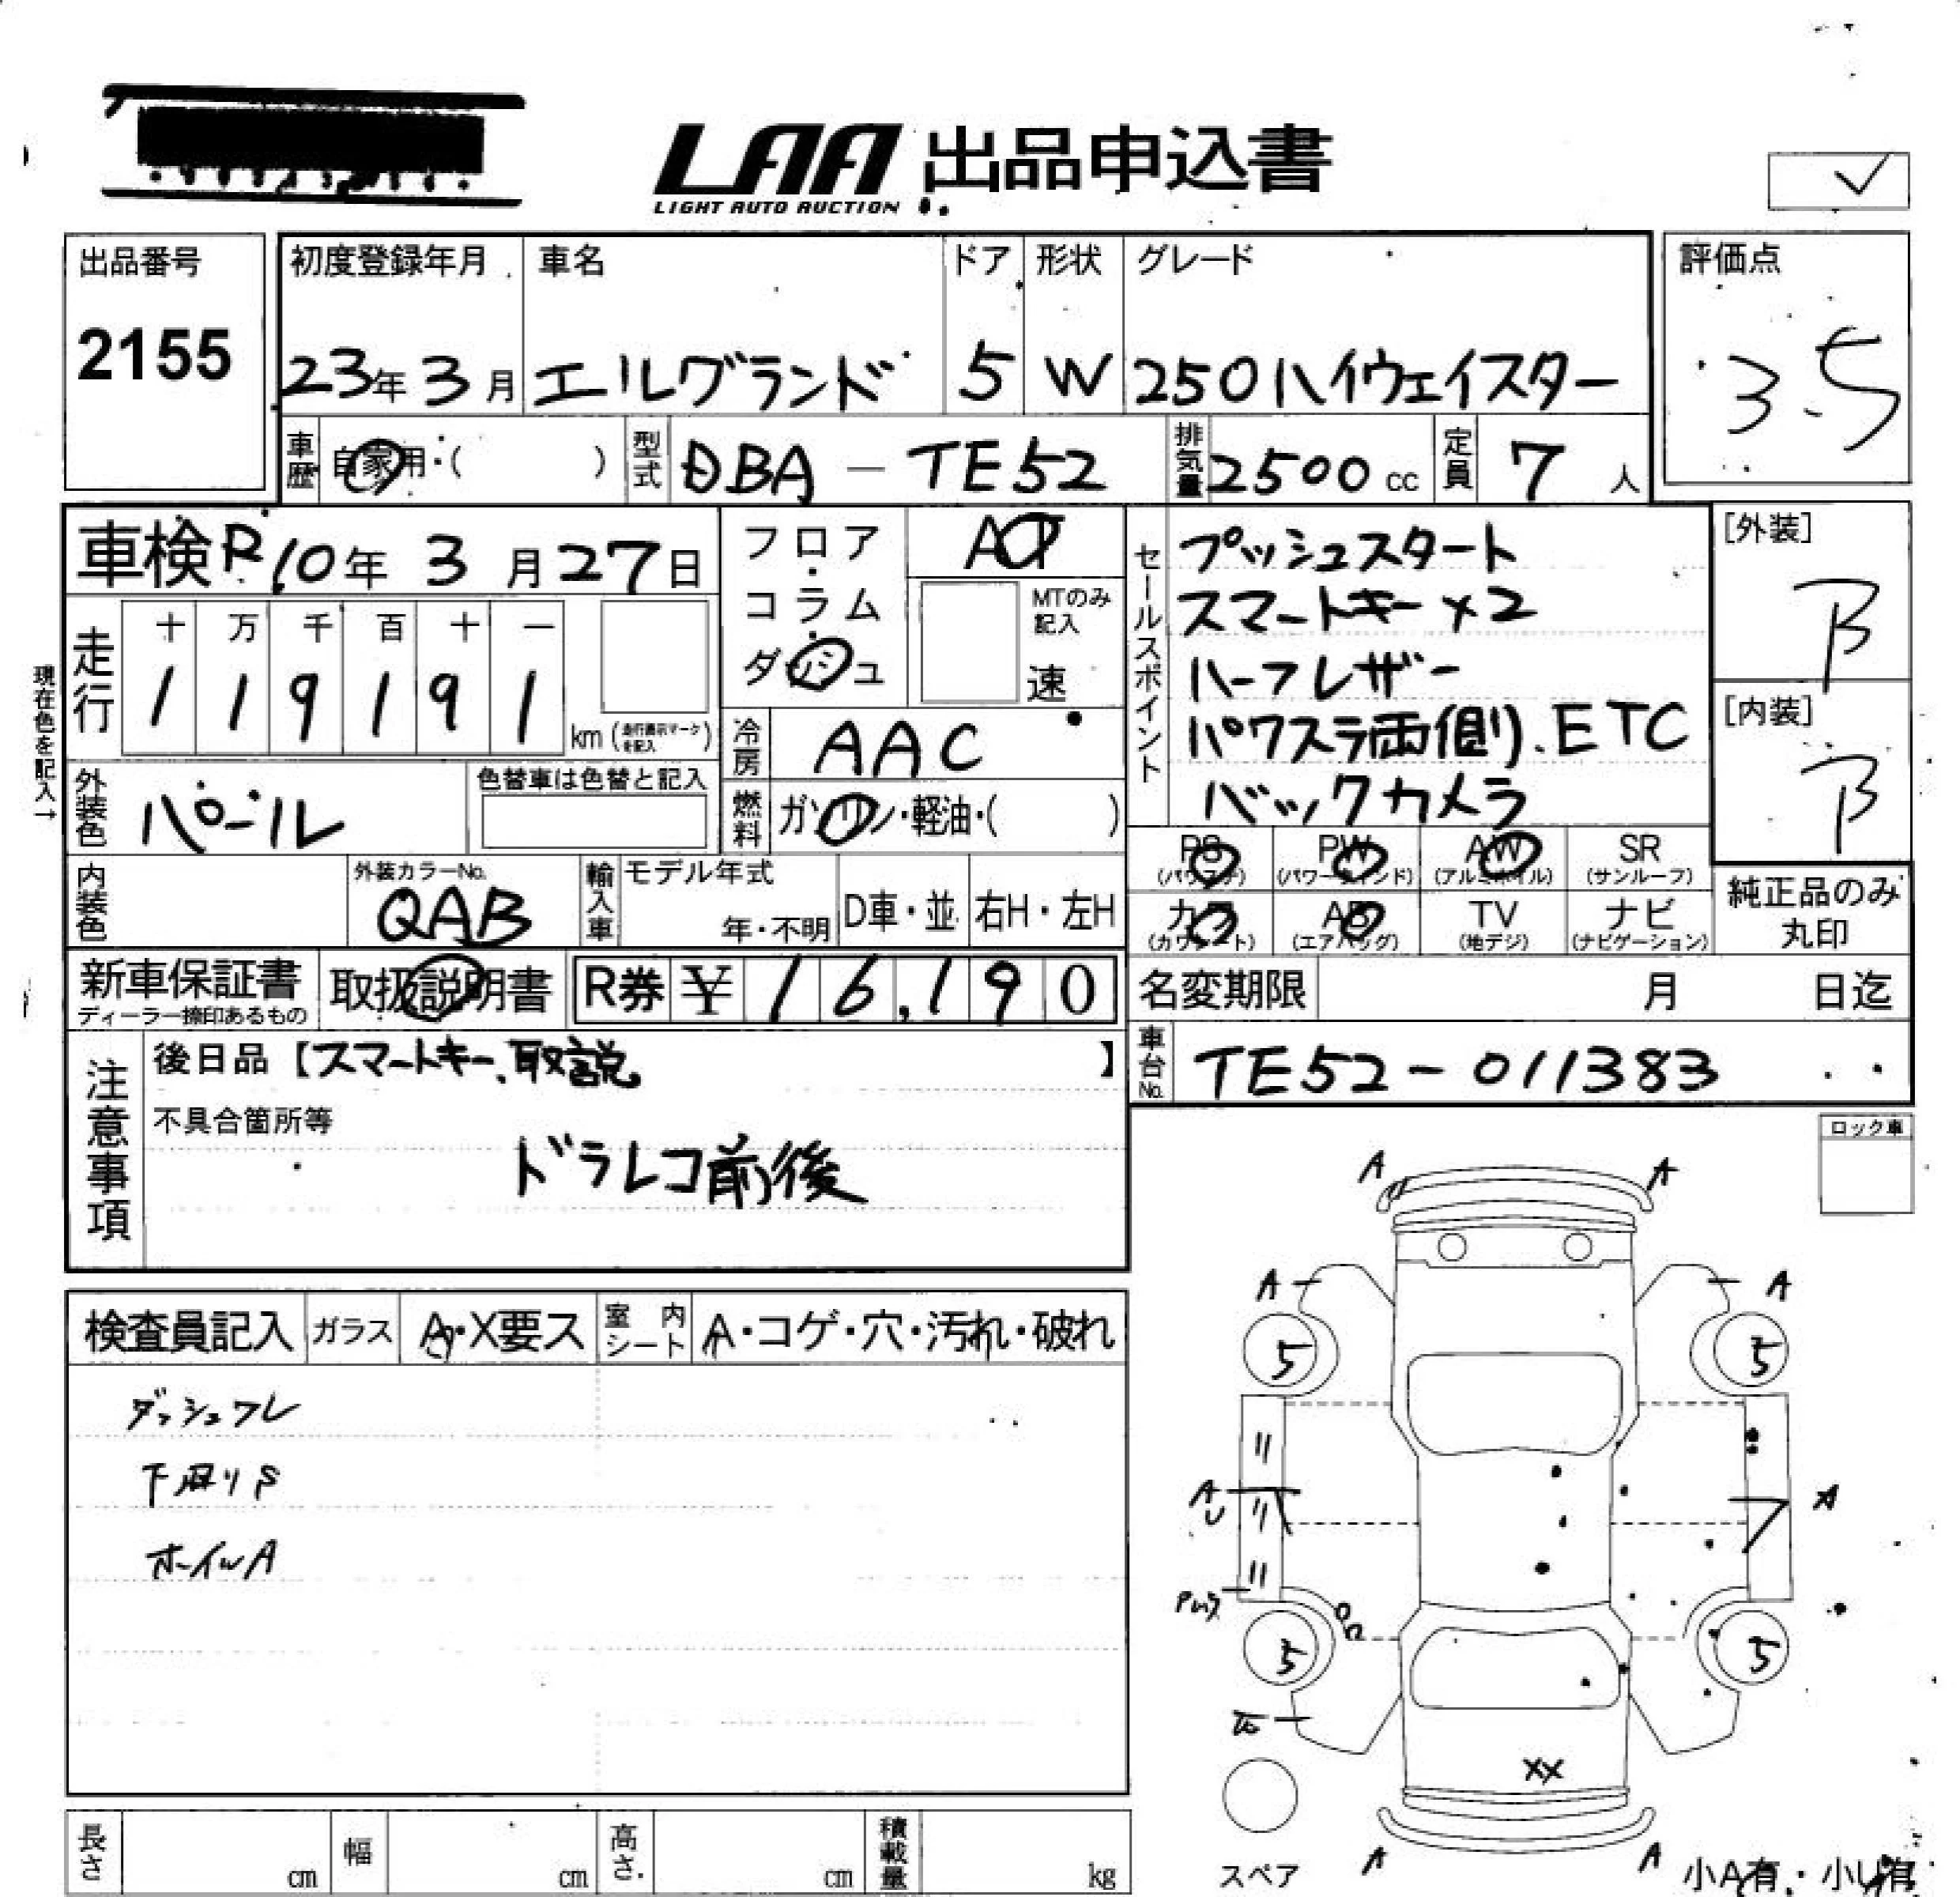 LAA 出品申込書
LIGHT AUTO AUCTION
出品番号
2155
初度登録年月 車名 ドア 形状 グレード
23年 3月 エルグランド 5 W 250ハイウェイスター
評価点
3.5
車歴 自家用・( ) 型式 DBA-TE52 排気量 2500cc 定員 7人
車検 R10年 3月27日
フロア
コラム
ダッシュ
AT
MTのみ記入
速
現在色を記入→
走行 十 万 千 百 十 一
1 1 9 1 9 1 km (走行表示マークを記入)
冷房 AAC
外装色 パール
色替車は色替と記入
燃料 ガソリン・軽油・( )
セールスポイント
プッシュスタート
スマートキー×2
ハーフレザー
パワスラ両側.ETC
バックカメラ
[外装]
B
[内装]
B
内装色
外装カラーNo.
QAB
輸入車 モデル年式
年・不明 D車・並 右H・左H
PS PW AW SR
(パワステ) (パワーウインド) (アルミホイル) (サンルーフ)
カワ AB TV ナビ
(カワシート) (エアバッグ) (地デジ) (ナビゲーション)
純正品のみ
丸印
新車保証書
ディーラー捺印あるもの
取扱説明書 R券 ¥ 16,190
名変期限 月 日迄
車台No. TE52-011383
注意事項
後日品【スマートキー、取説 】
不具合箇所等
ドラレコ前後
ロック車
検査員記入 ガラス A・X要ス 室内シート A・コゲ・穴・汚れ・破れ
ダッシュワレ
下廻りS
ホイルA
A A
A A
5 5
A
U
A
5 5
XX
A A
スペア
小A有・小U有
長さ cm 幅 cm 高さ cm 積載量 kg